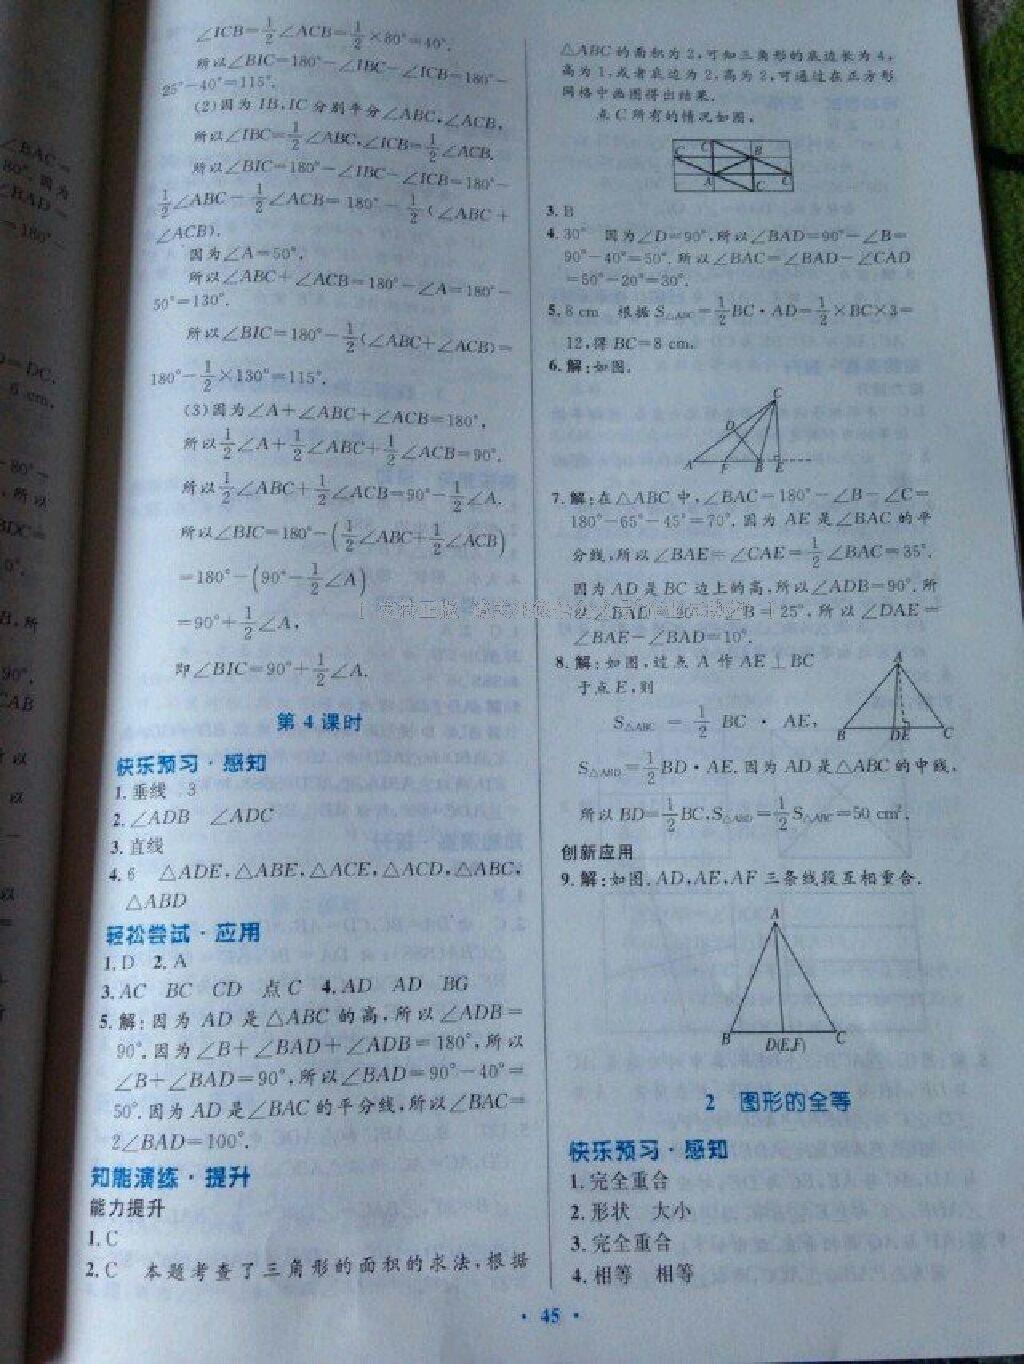 ∠ICB=1/2∠ACB=1/2×80°=40°.
所以∠BIC=180°-∠IBC-∠ICB=180°-
25°-40°=115°.
(2)因为 IB,IC 分别平分∠ABC,∠ACB,
所以∠IBC=1/2∠ABC,∠ICB=1/2∠ACB.
所以∠BIC=180°-∠IBC-∠ICB=180°-
1/2∠ABC-1/2∠ACB=180°-1/2(∠ABC+
∠ACB).
因为∠A=50°,
所以∠ABC+∠ACB=180°-∠A=180°-
50°=130°.
所以∠BIC=180°-1/2(∠ABC+∠ACB)=
180°-1/2×130°=115°.
(3)因为∠A+∠ABC+∠ACB=180°,
所以1/2∠A+1/2∠ABC+1/2∠ACB=90°.
所以1/2∠ABC+1/2∠ACB=90°-1/2∠A.
所以∠BIC=180°-(1/2∠ABC+1/2∠ACB)
=180°-(90°-1/2∠A)
=90°+1/2∠A,
即∠BIC=90°+1/2∠A.
第 4 课时
快乐预习·感知
1.垂线 3
2.∠ADB ∠ADC
3.直线
4.6 △ADE,△ABE,△ACE,△ACD,△ABC,
△ABD
轻松尝试·应用
1.D 2.A
3.AC BC CD 点 C 4.AD AD BG
5.解:因为 AD 是△ABC 的高,所以∠ADB=
90°.因为∠B+∠BAD+∠ADB=180°,所以
∠B+∠BAD=90°,所以∠BAD=90°-40°=
50°.因为 AD 是∠BAC 的平分线,所以∠BAC=
2∠BAD=100°.
知能演练·提升
能力提升
1.C
2.C 本题考查了三角形的面积的求法,根据
△ABC 的面积为 2,可知三角形的底边长为 4,
高为 1,或者底边为 2,高为 2,可通过在正方形
网格中画图得出结果.
点 C 所有的情况如图,
C C B
A C C
3.B
4.30° 因为∠D=90°,所以∠BAD=90°-∠B=
90°-40°=50°.所以∠BAC=∠BAD-∠CAD
=50°-20°=30°.
5.8 cm 根据 S△ABC=1/2BC·AD=1/2×BC×3=
12,得 BC=8 cm.
6.解:如图.
C
D
A F B E
7.解:在△ABC 中,∠BAC=180°-∠B-∠C=
180°-65°-45°=70°.因为 AE 是∠BAC 的平
分线,所以∠BAE=∠CAE=1/2∠BAC=35°.
因为 AD 是 BC 边上的高,所以∠ADB=90°.所
以∠BAD=90°-∠B=25°,所以∠DAE=
∠BAE-∠BAD=10°.
8.解:如图,过点 A 作 AE⊥BC
于点 E,则
S△ABC=1/2BC·AE,
S△ABD=1/2BD·AE.因为 AD 是△ABC 的中线,
所以 BD=1/2BC,S△ABD=1/2S△ABC=50 cm².
A
B DE C
创新应用
9.解:如图.AD,AE,AF 三条线段互相重合.
A
B D(E,F) C
2 图形的全等
快乐预习·感知
1.完全重合
2.形状 大小
3.完全重合
4.相等 相等
· 45 ·